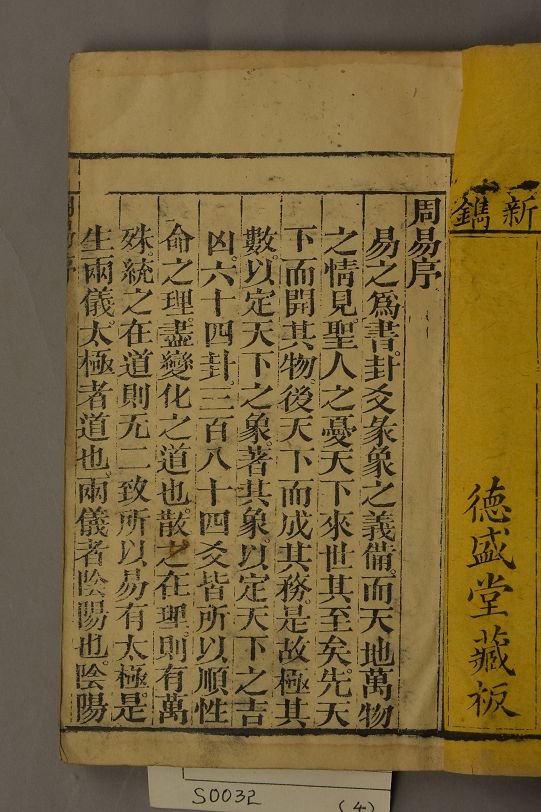 新鐫
德盛堂藏板
周易序
易之爲書卦爻彖象之義備而天地萬物
之情見聖人之憂天下來世其至矣先天
下而開其物後天下而成其務是故極其
數以定天下之象著其象以定天下之吉
凶六十四卦三百八十四爻皆所以順性
命之理盡變化之道也散之在理則有萬
殊統之在道則无二致所以易有太極是
生兩儀太極者道也兩儀者陰陽也陰陽
周易序
S0032
(4)